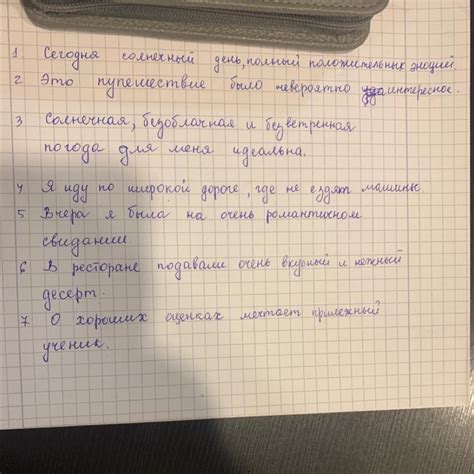 1. Сегодня солнечный день, полный положительных эмоций.
2 Это путешествие было невероятно интересное.
3 Солнечная, безоблачная и безветренная
погода для меня идеальна.
4 Я иду по широкой дороге, где не ездят машины.
5 Вчера я была на очень романтичном
свидании
6 В ресторане подавали очень вкусный и нежный
десерт.
7 О хороших оценках мечтает прилежный
ученик.